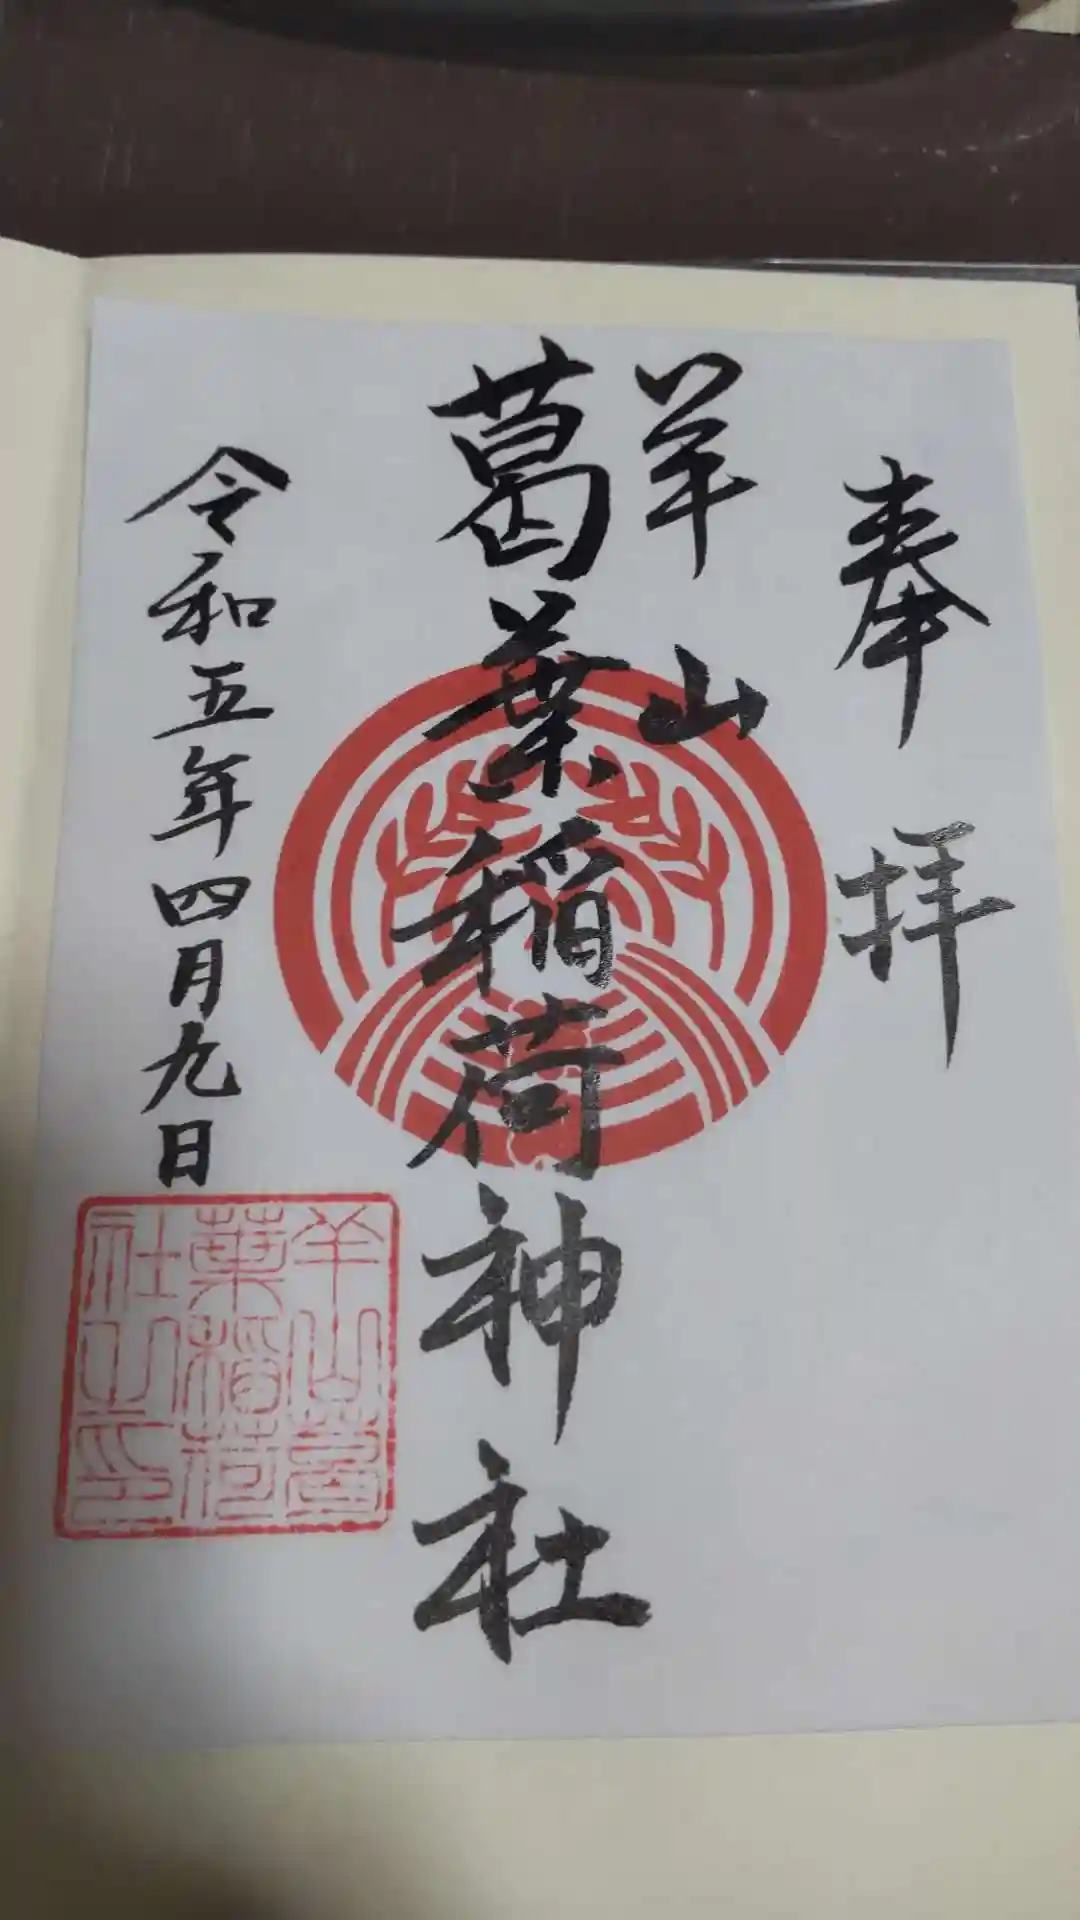 奉拝
羊山
葛葉稲荷神社
令和五年四月九日
羊山葛
葉稲荷
社之印